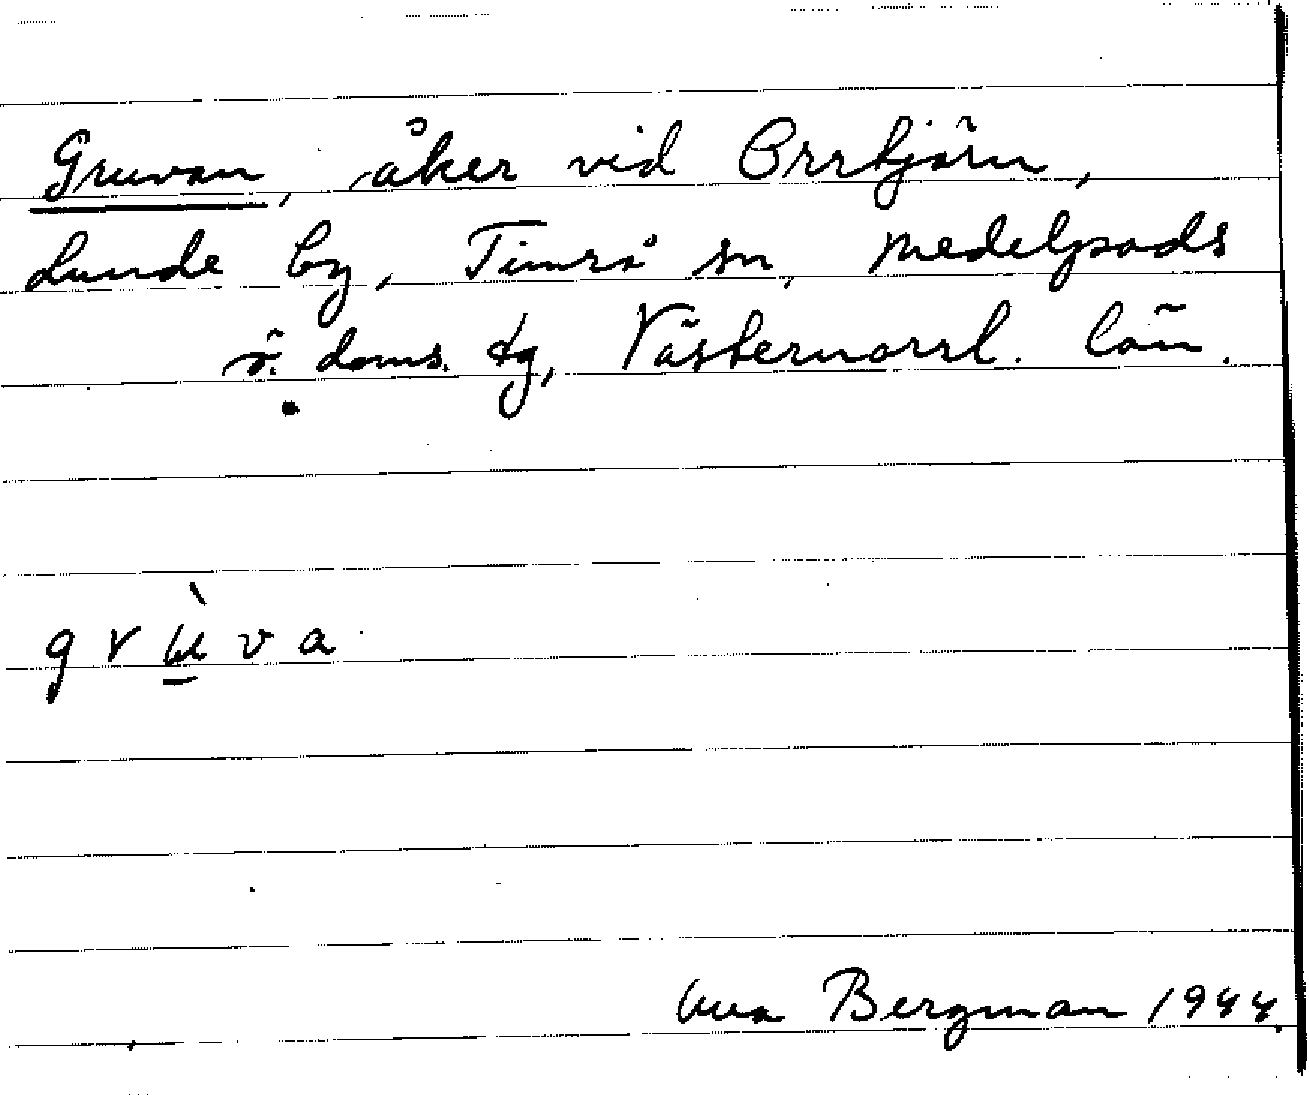 Gruvan, åker vid Orrtjärn,
Lunde by, Timrå sn, Medelpads
ö. doms. tg, Västernorrl. län.
grùva
Bergman 1944.